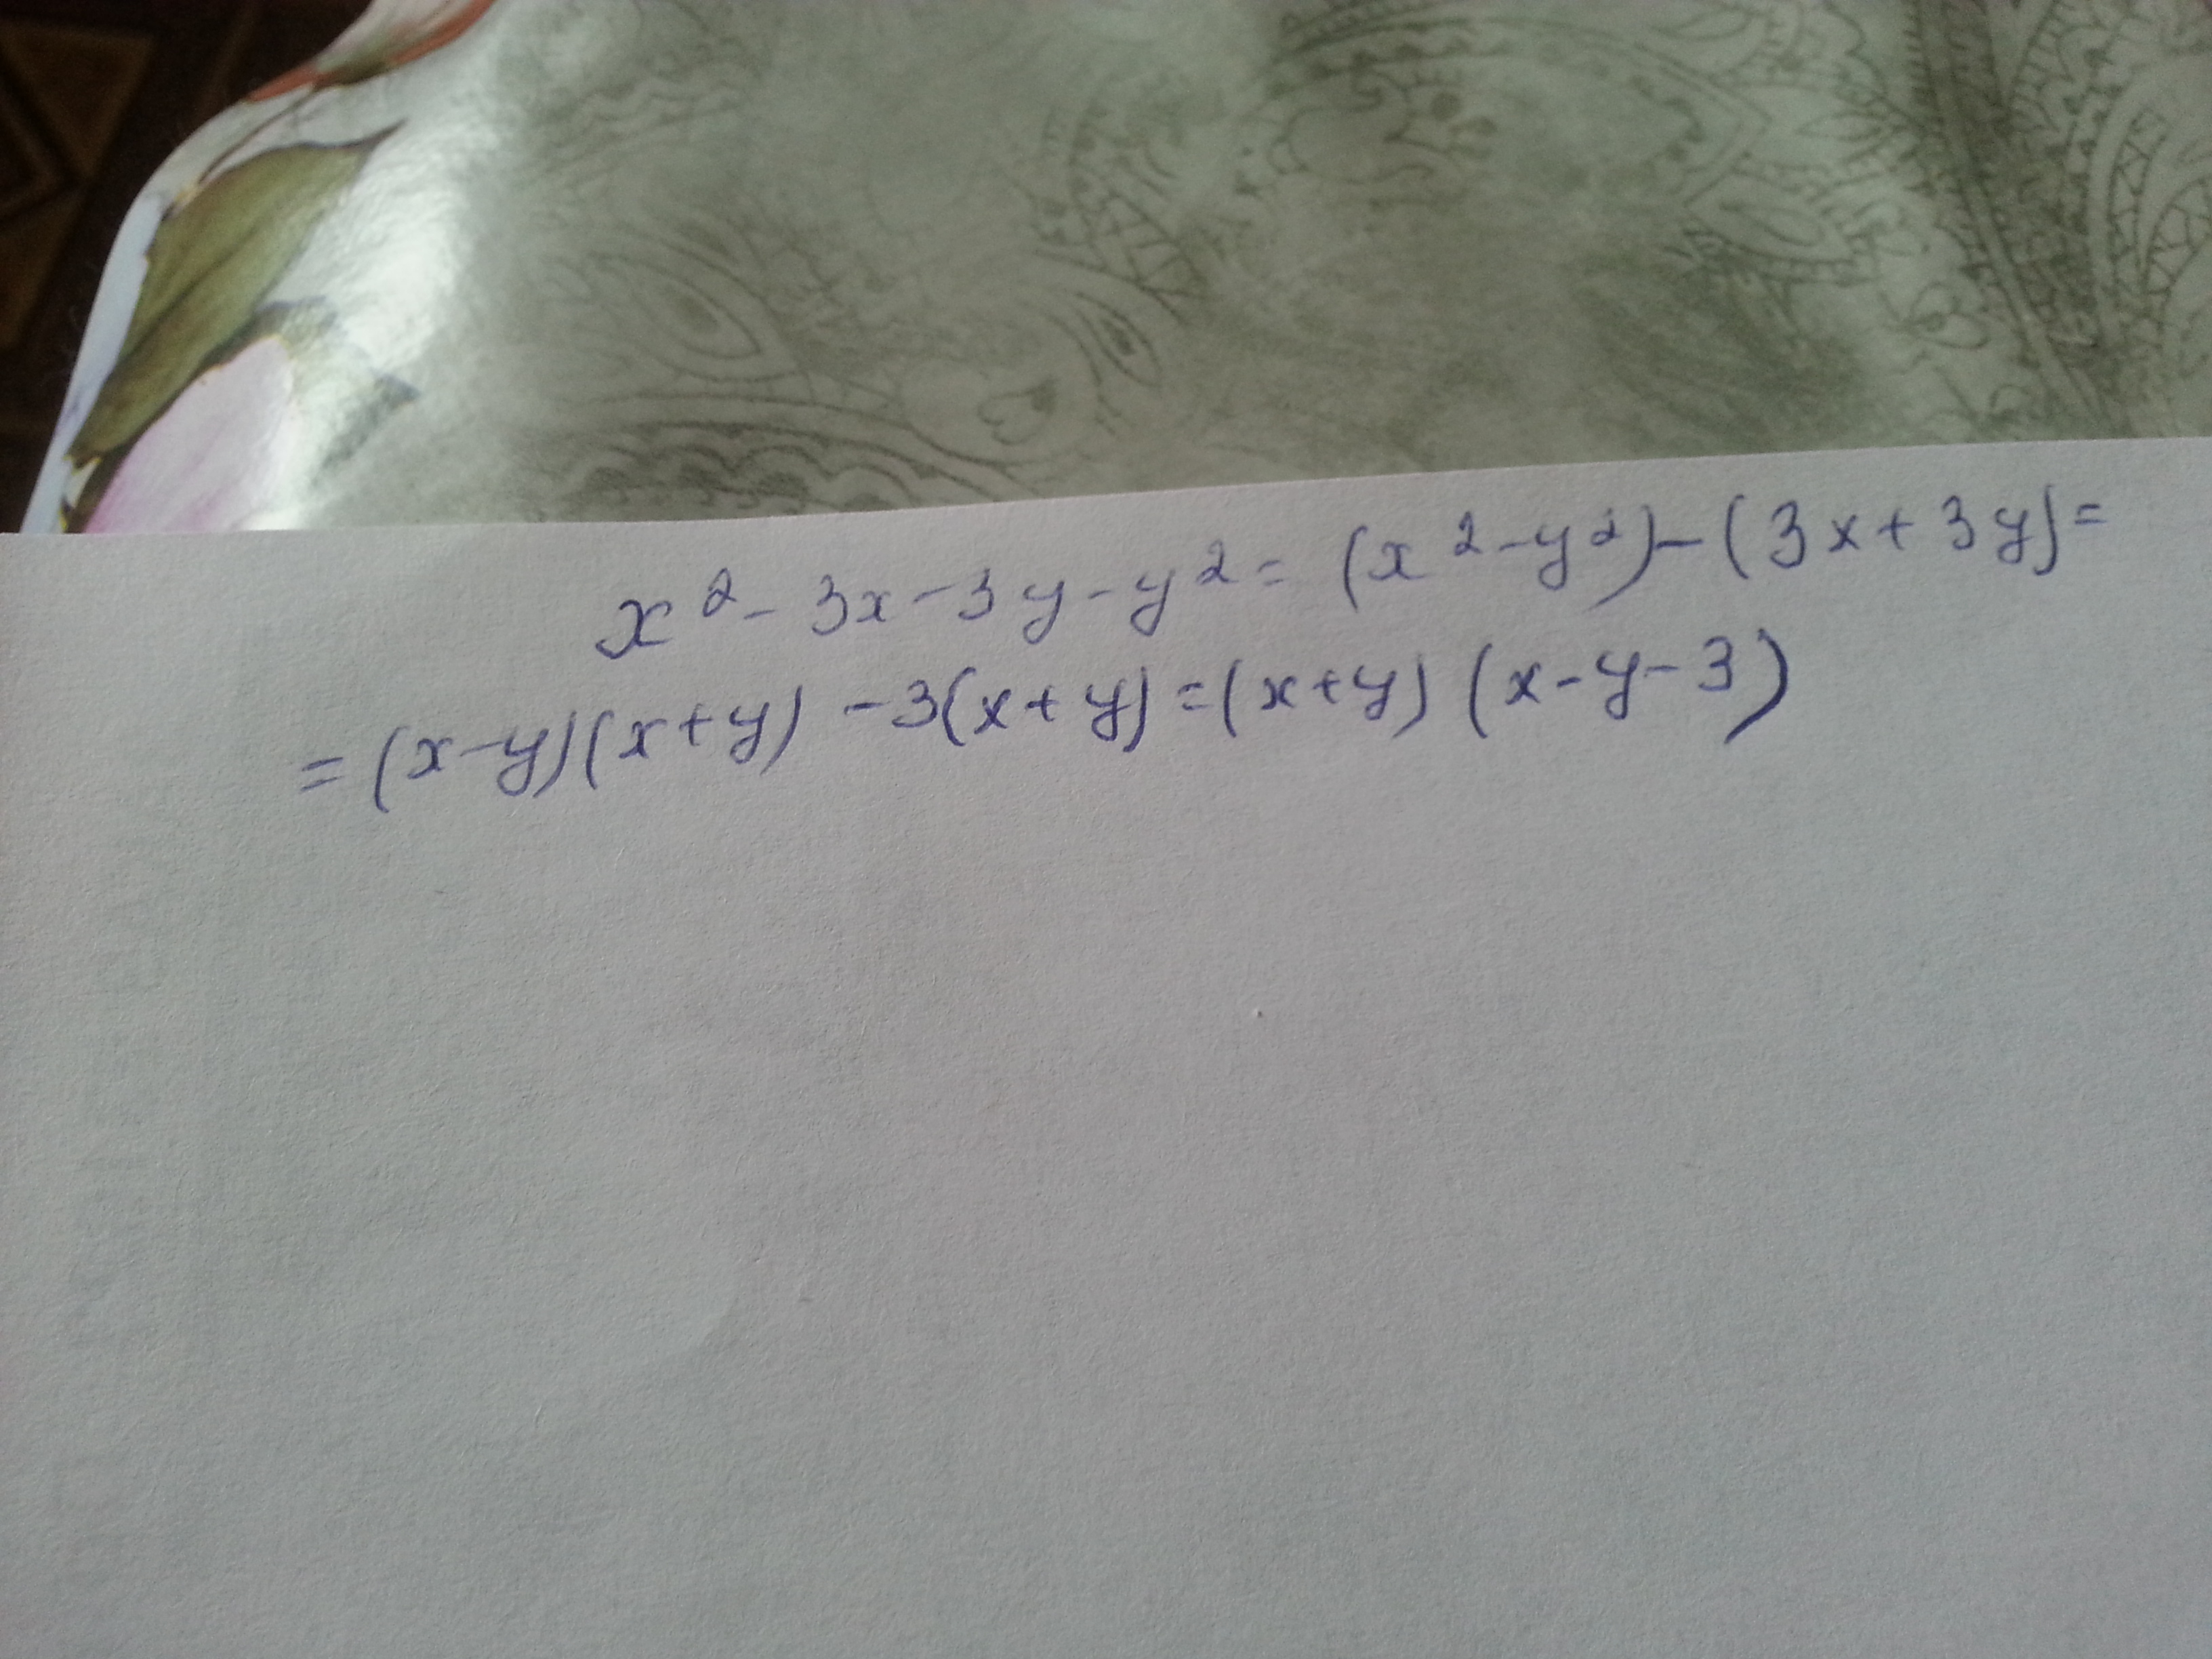 x² - 3x - 3y - y² = (x² - y²) - (3x + 3y) =
= (x - y)(x + y) - 3(x + y) = (x + y) (x - y - 3)